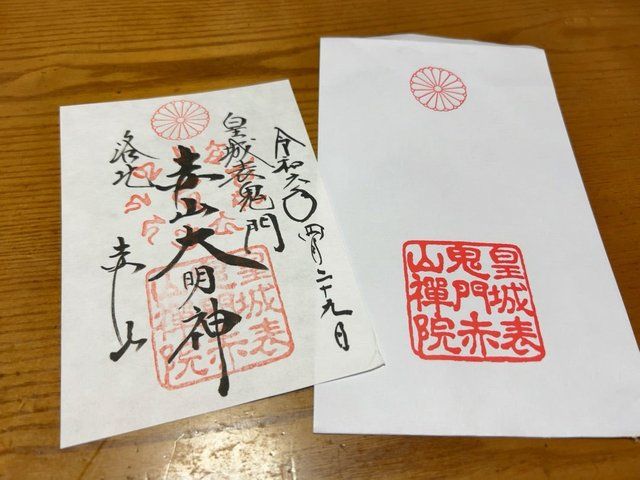 令和六年四月二十九日
皇城表鬼門
赤山大明神
洛北 赤山
皇城表
鬼門赤
山禪院
皇城表
鬼門赤
山禪院